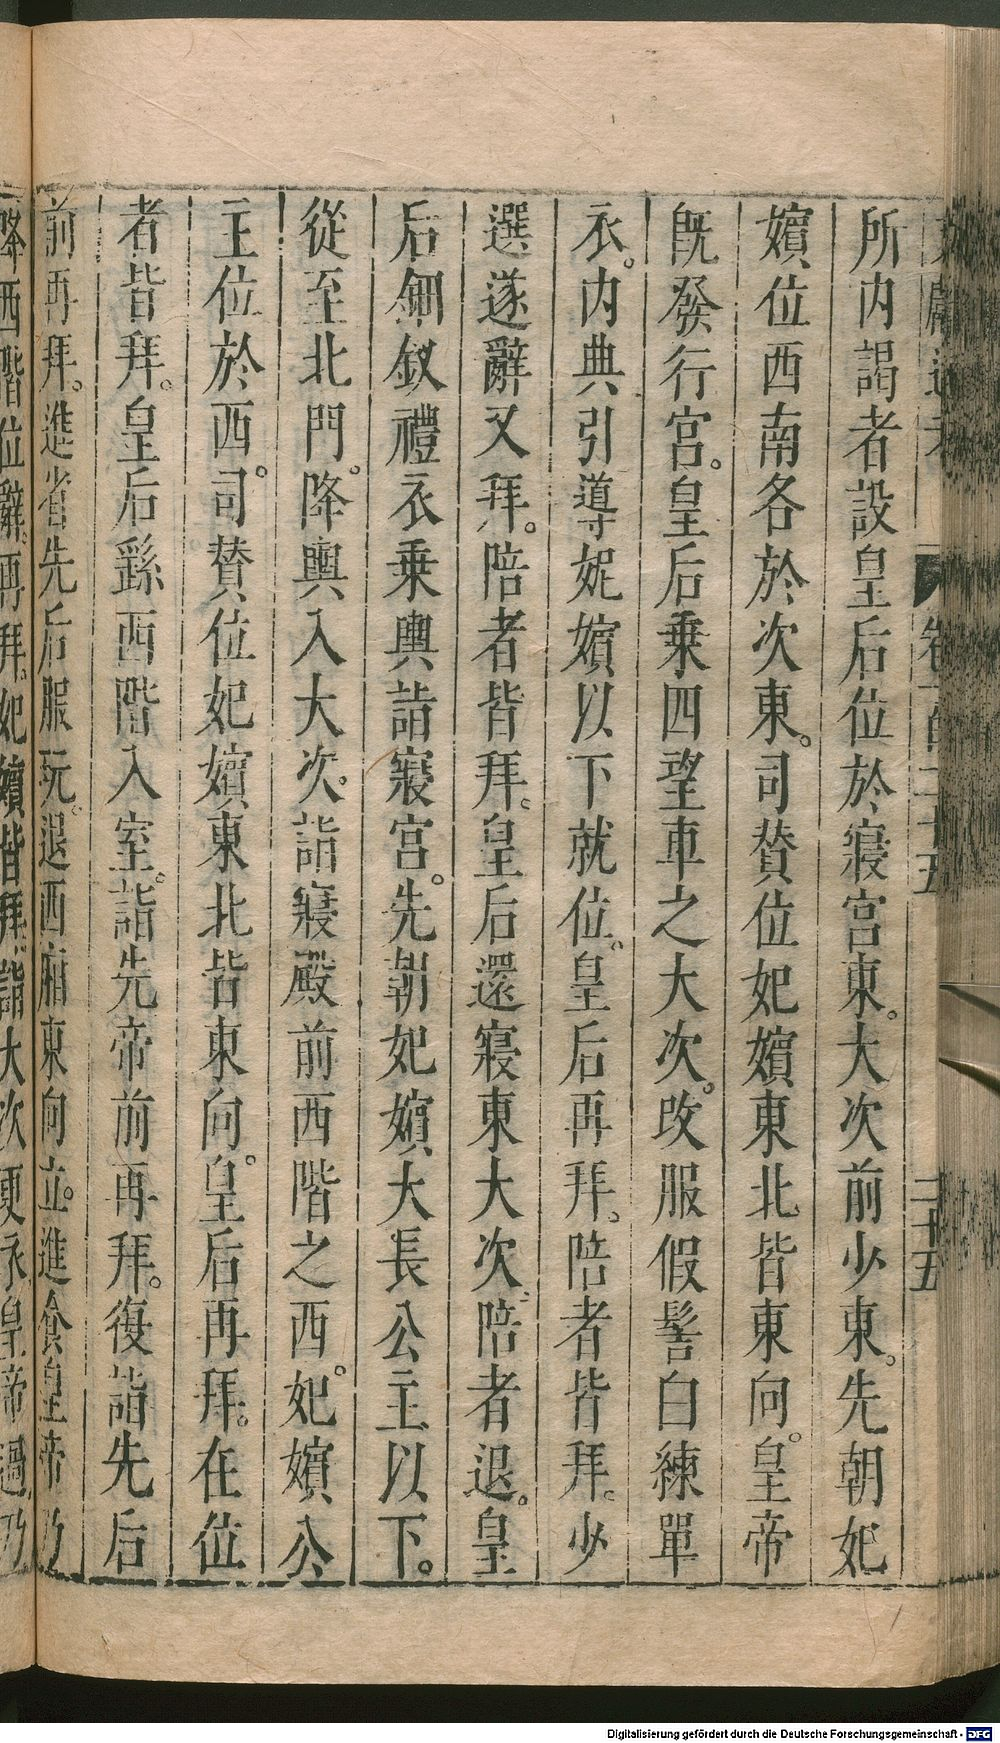 文獻通考 卷一百二十五 二十五
所内謁者設皇后位於寢宮東。大次前少東。先朝妃
嬪位西南各於次東。司賛位妃嬪東北皆東向。皇帝
旣發行宮。皇后乗四望車之大次。改服假髻白練單
衣。内典引導妮嬪以下就位。皇后再拜。陪者皆拜。少
選遂辭又拜。陪者皆拜。皇后還寢東大次。陪者退。皇
后鈿釵禮衣乗輿詣寢宮。先朝妃嬪大長公主以下。
從至北門。降輿入大次。詣寢殿前西階之西。妃嬪公
主位於西。司賛位妃嬪東北皆東向。皇后再拜。在位
者皆拜。皇后繇西階入室。詣先帝前再拜。復詣先后
前再拜。進省先后服玩。退西廂東向立。進食皇帝乃
降西階位辭。再拜。妃嬪皆拜。詣大次更衣皇帝過乃
Digitalisierung gefördert durch die Deutsche Forschungsgemeinschaft - DFG